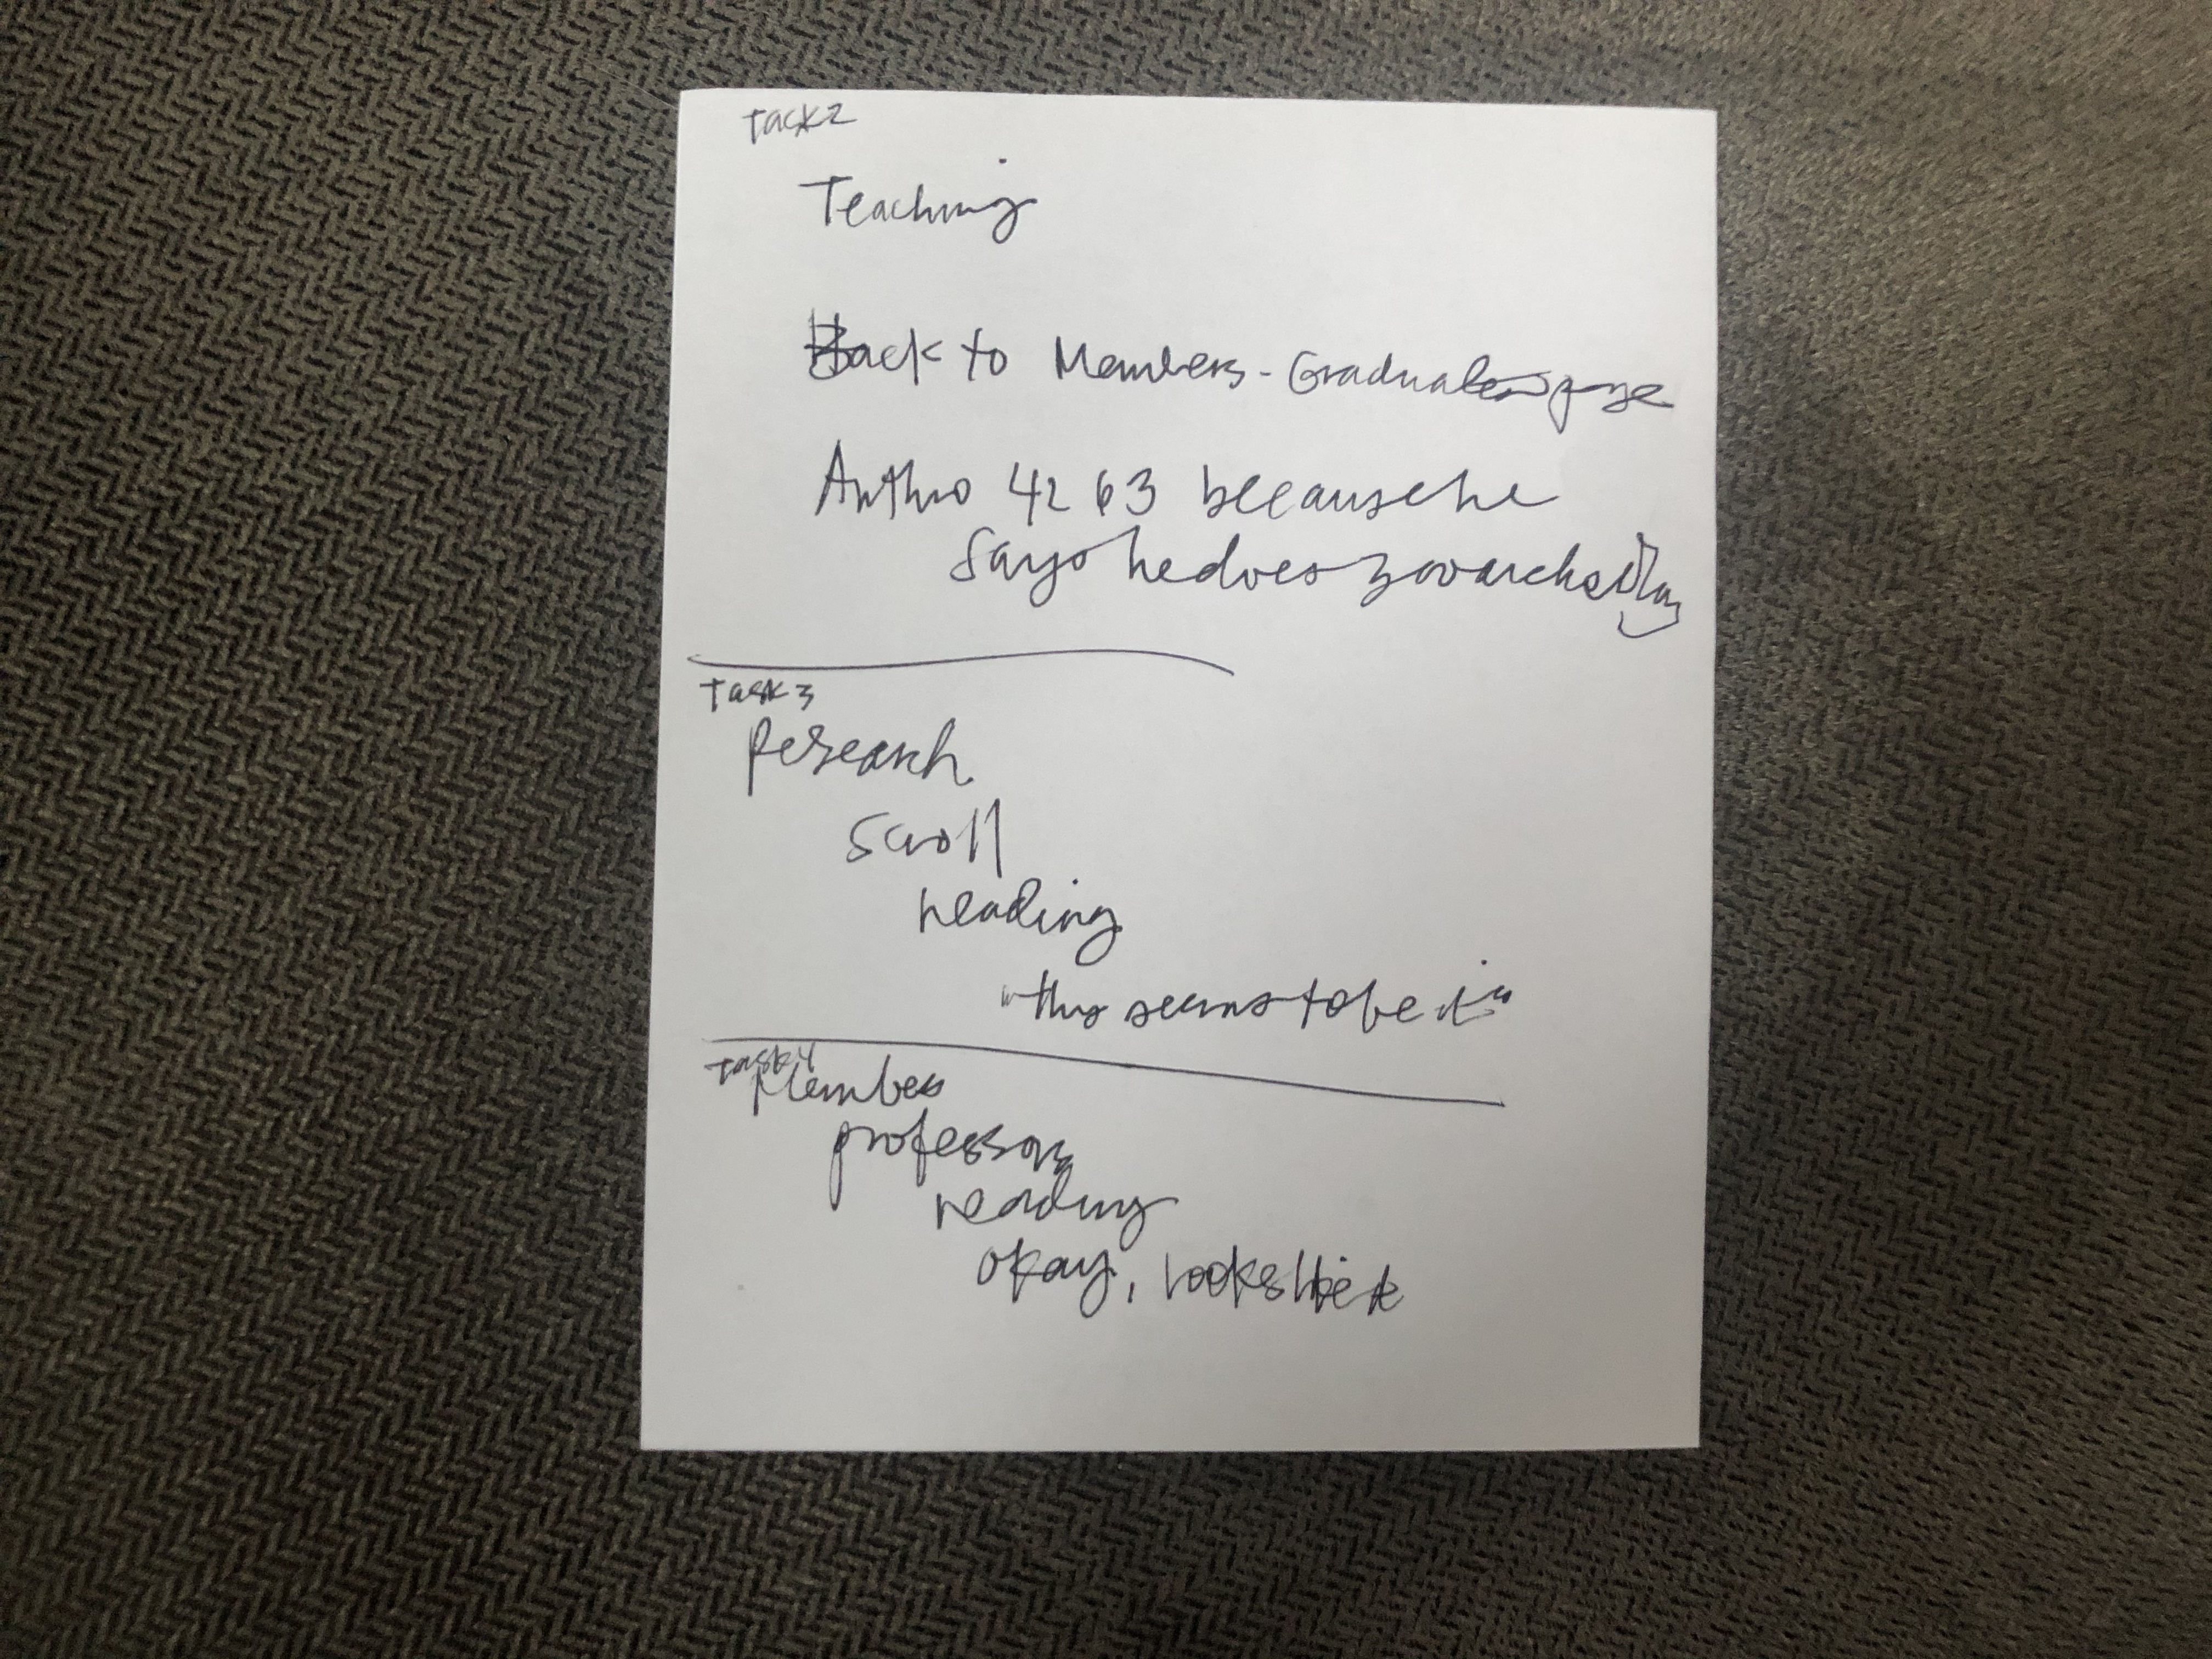 Task 2
Teaching
Back to Members - Graduate page
Anthro 4263 because he
says he does zooarchaeology
Task 3
Research
scroll
reading
"this seems to be it"
Task 4
Members
professors
reading
okay, looks like it